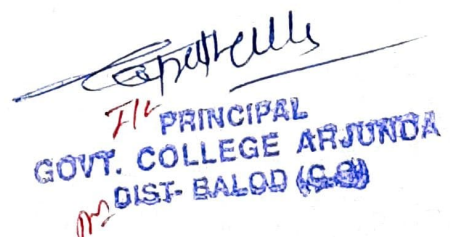 I/c PRINCIPAL
GOVT. COLLEGE ARJUNDA
DIST- BALOD (C.G)